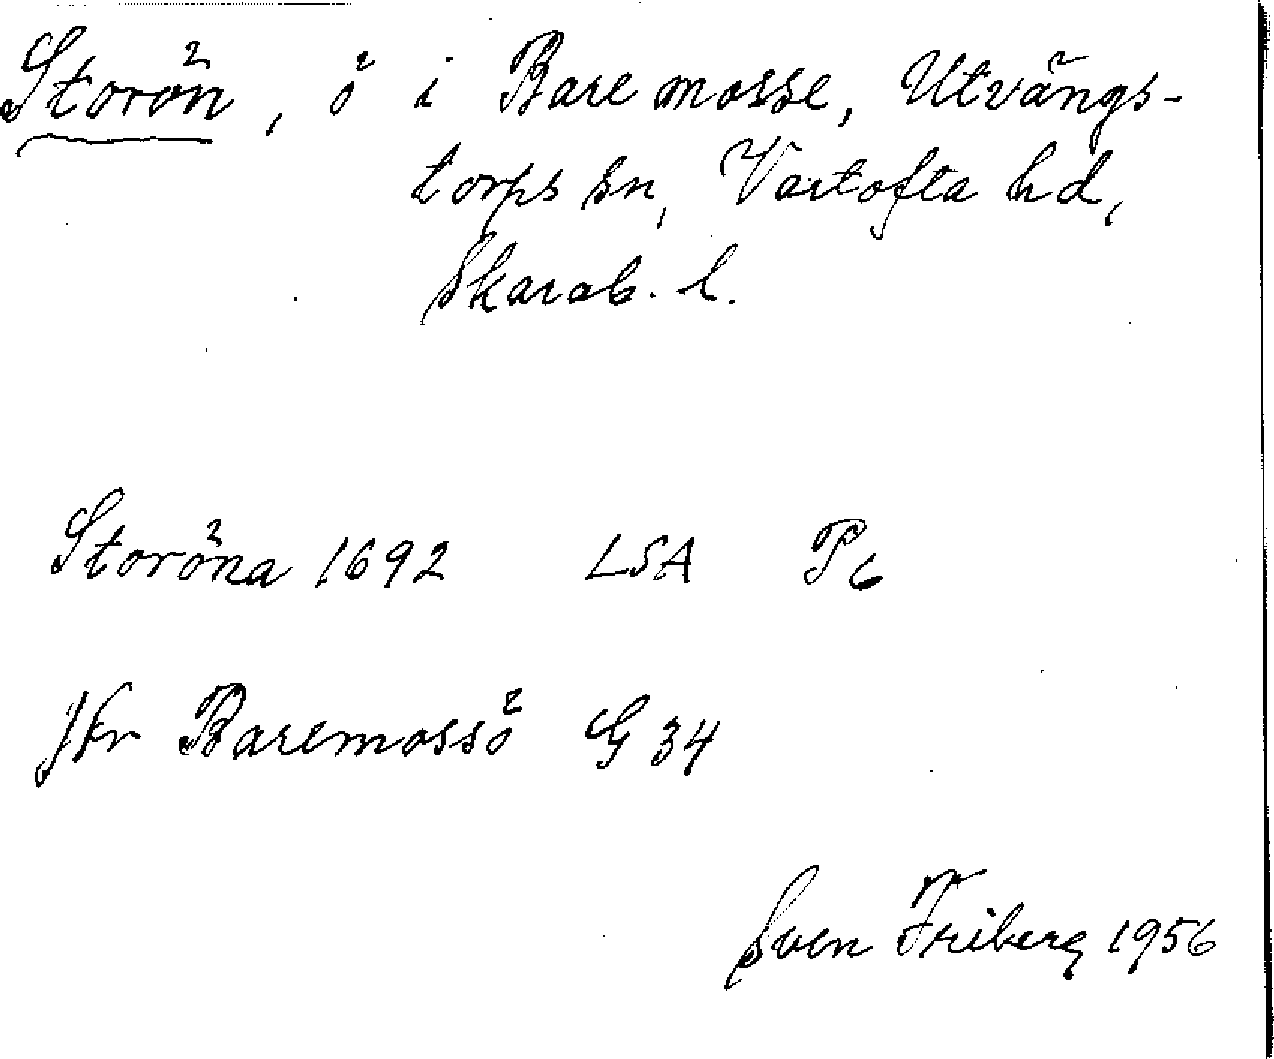 Storön, ö i Bare mosse, Utvängs-
torps sn, Vartofta hd,
Skarab. l.
Storöna 1692 LSA P6
Jfr Baremossö G 34
Sven Friberg 1956